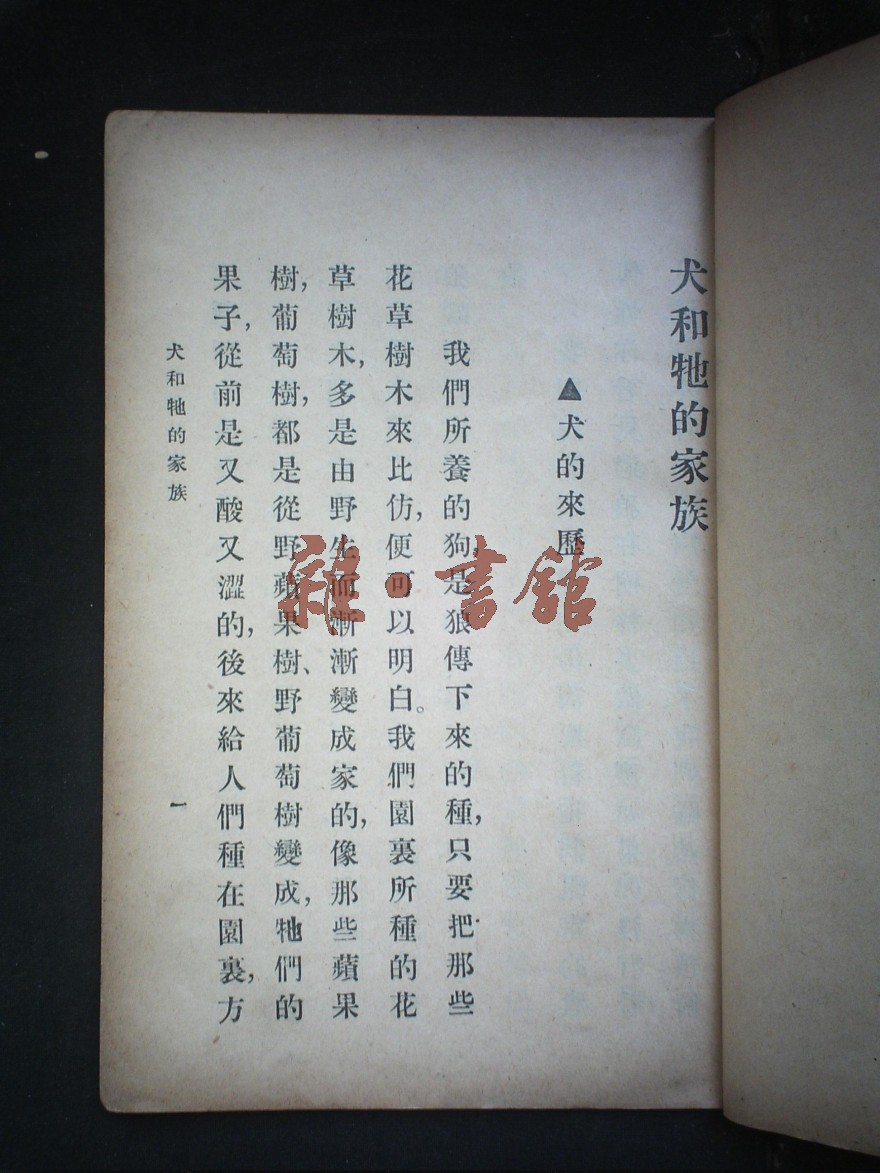 犬和牠的家族
▲犬的來歷
我們所養的狗，是狼傳下來的種，只要把那些
花草樹木來比仿，便可以明白。我們園裏所種的花
草樹木，多是由野生而漸漸變成家的，像那些蘋果
樹，葡萄樹，都是從野蘋果樹、野葡萄樹變成，牠們的
果子，從前是又酸又澀的，後來給人們種在園裏，方
犬和牠的家族
一
雜·書館